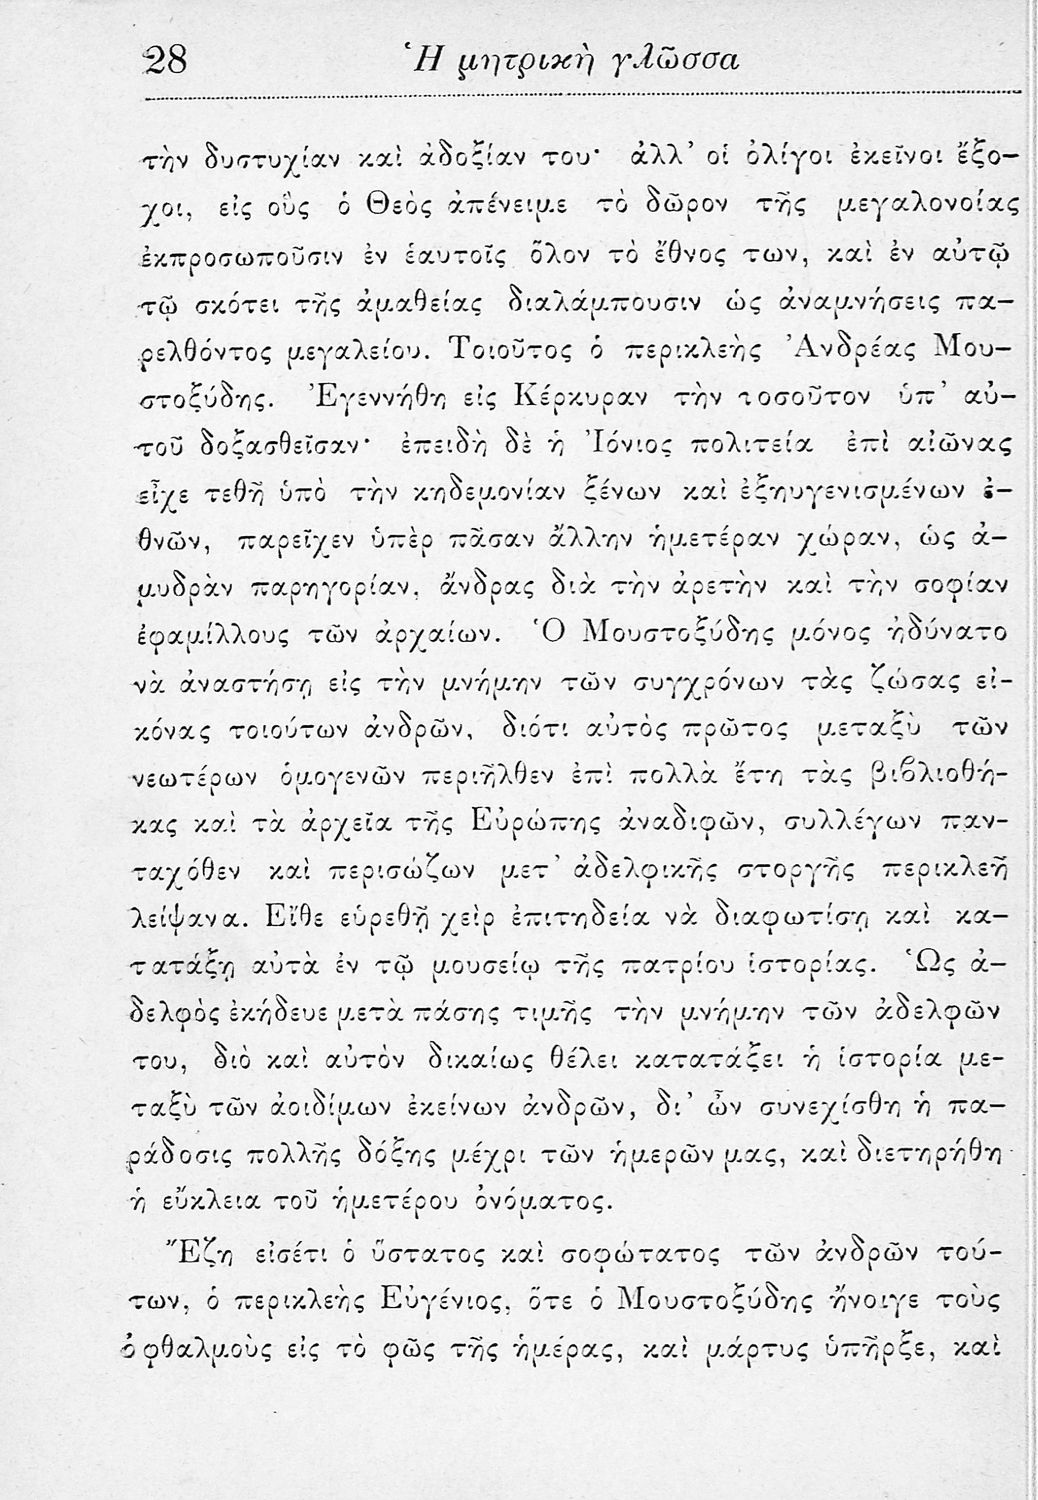 28 Ἡ μητρικὴ γλῶσσα
τὴν δυστυχίαν καὶ ἀδοξίαν του· ἀλλ’ οἱ ὀλίγοι ἐκεῖνοι ἔξο-
χοι, εἰς οὓς ὁ Θεὸς ἀπένειμε τὸ δῶρον τῆς μεγαλονοίας
ἐκπροσωποῦσιν ἐν ἑαυτοῖς ὅλον τὸ ἔθνος των, καὶ ἐν αὐτῷ
τῷ σκότει τῆς ἀμαθείας διαλάμπουσιν ὡς ἀναμνήσεις πα-
ρελθόντος μεγαλείου. Τοιοῦτος ὁ περικλεὴς Ἀνδρέας Μου-
στοξύδης. Ἐγεννήθη εἰς Κέρκυραν τὴν τοσοῦτον ὑπ’ αὐ-
τοῦ δοξασθεῖσαν· ἐπειδὴ δὲ ἡ Ἰόνιος πολιτεία ἐπὶ αἰῶνας
εἶχε τεθῆ ὑπὸ τὴν κηδεμονίαν ξένων καὶ ἐξηυγενισμένων ἐ-
θνῶν, παρεῖχεν ὑπὲρ πᾶσαν ἄλλην ἡμετέραν χώραν, ὡς ἀ-
μυδρὰν παρηγορίαν, ἄνδρας διὰ τὴν ἀρετὴν καὶ τὴν σοφίαν
ἐφαμίλλους τῶν ἀρχαίων. Ὁ Μουστοξύδης μόνος ἠδύνατο
νὰ ἀναστήσῃ εἰς τὴν μνήμην τῶν συγχρόνων τὰς ζώσας εἰ-
κόνας τοιούτων ἀνδρῶν, διότι αὐτὸς πρῶτος μεταξὺ τῶν
νεωτέρων ὁμογενῶν περιῆλθεν ἐπὶ πολλὰ ἔτη τὰς βιβλιοθή-
κας καὶ τὰ ἀρχεῖα τῆς Εὐρώπης ἀναδιφῶν, συλλέγων παν-
ταχόθεν καὶ περισώζων μετ’ ἀδελφικῆς στοργῆς περικλεῆ
λείψανα. Εἴθε εὑρεθῇ χεὶρ ἐπιτηδεία νὰ διαφωτίσῃ καὶ κα-
τατάξῃ αὐτὰ ἐν τῷ μουσείῳ τῆς πατρίου ἱστορίας. Ὡς ἀ-
δελφὸς ἐκήδευε μετὰ πάσης τιμῆς τὴν μνήμην τῶν ἀδελφῶν
του, διὸ καὶ αὐτὸν δικαίως θέλει κατατάξει ἡ ἱστορία με-
ταξὺ τῶν ἀοιδίμων ἐκείνων ἀνδρῶν, δι’ ὧν συνεχίσθη ἡ πα-
ράδοσις πολλῆς δόξης μέχρι τῶν ἡμερῶν μας, καὶ διετηρήθη
ἡ εὔκλεια τοῦ ἡμετέρου ὀνόματος.
Ἔζη εἰσέτι ὁ ὕστατος καὶ σοφώτατος τῶν ἀνδρῶν τού-
των, ὁ περικλεὴς Εὐγένιος, ὅτε ὁ Μουστοξύδης ἤνοιγε τοὺς
ὀφθαλμοὺς εἰς τὸ φῶς τῆς ἡμέρας, καὶ μάρτυς ὑπῆρξε, καὶ